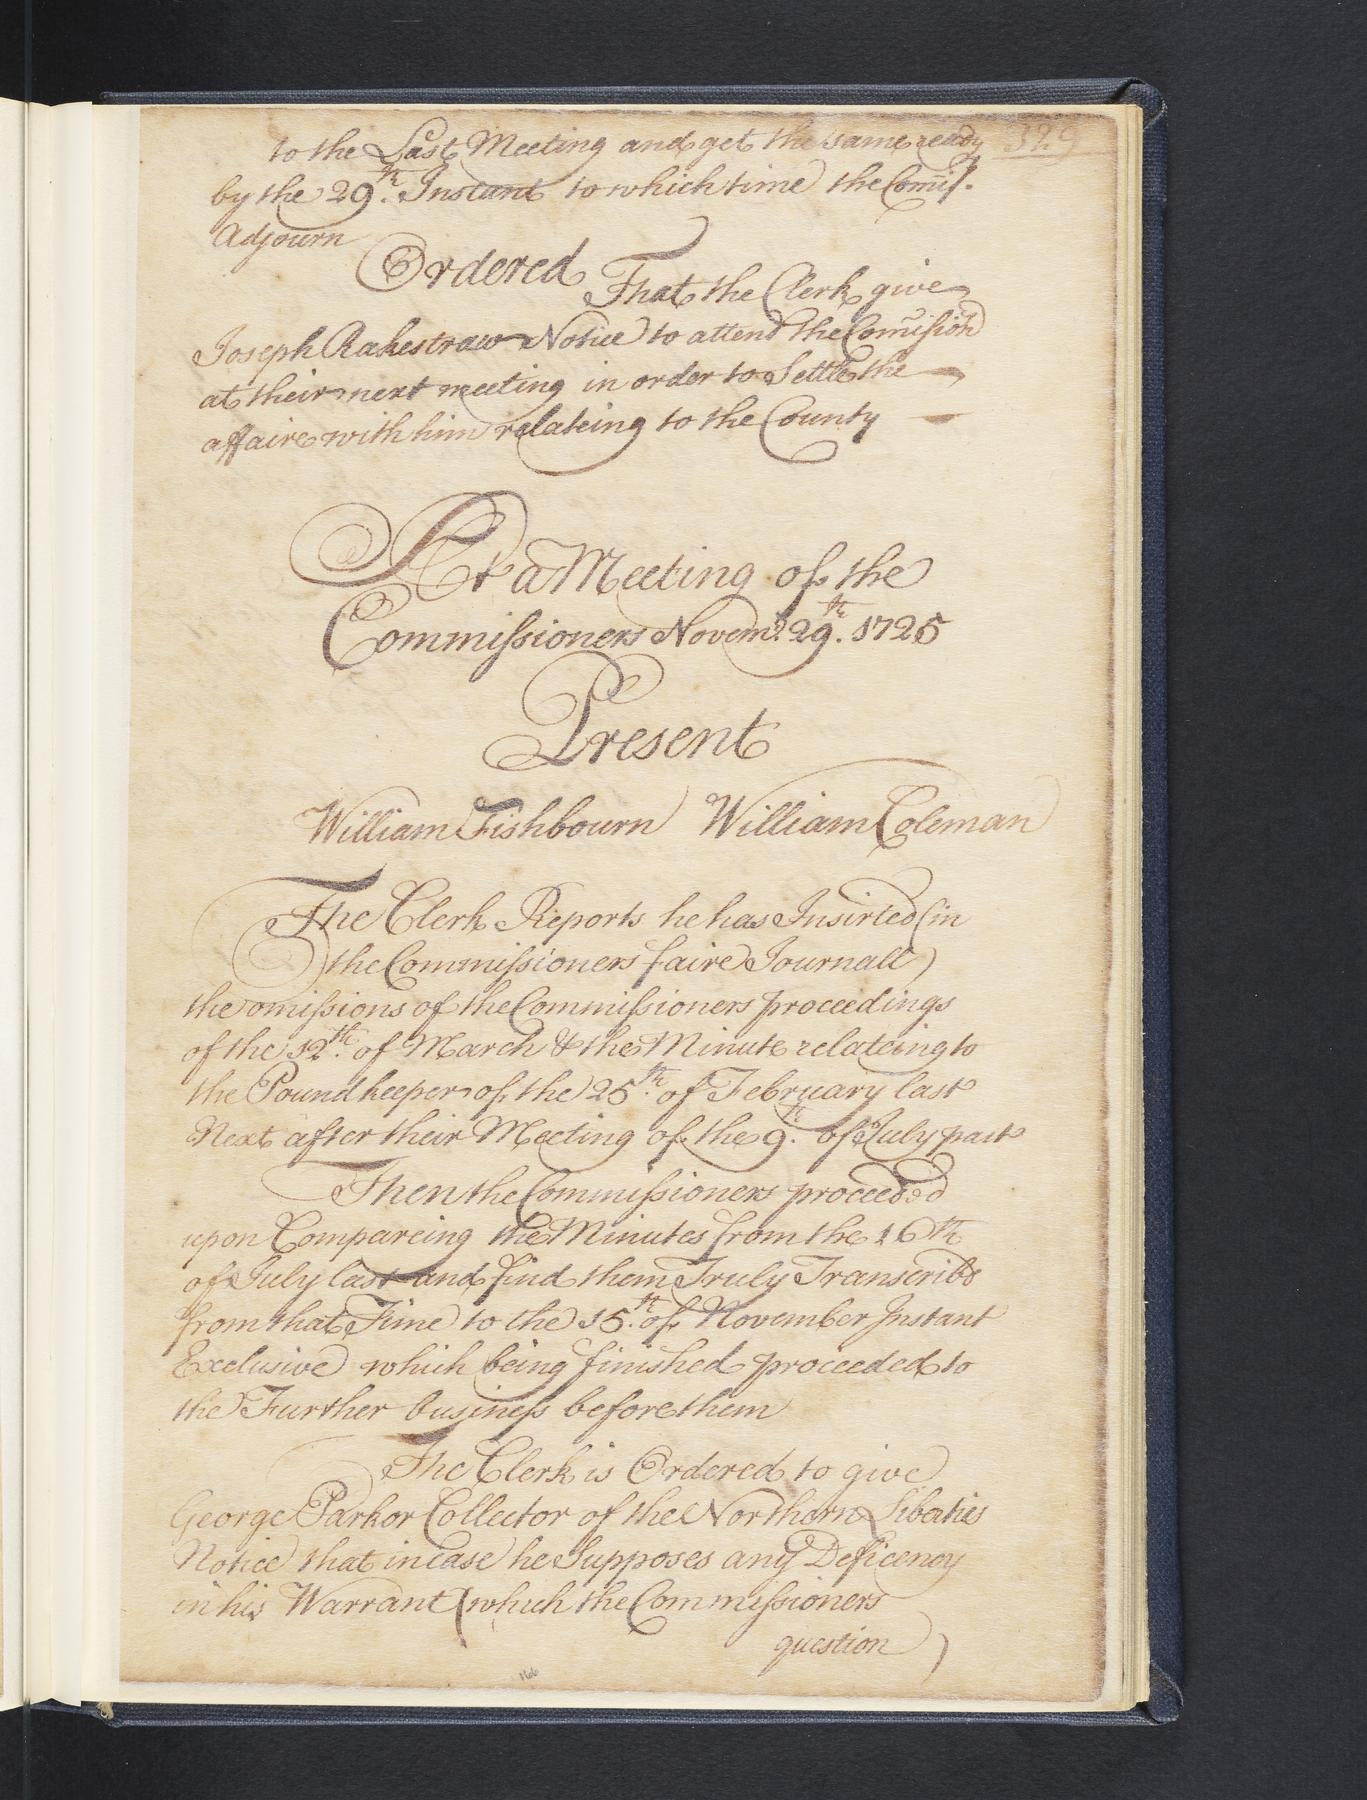 to the Last Meeting and get the same ready 329
by the 29th. Instant to which time the Comis.
Adjourn
Ordered That the Clerk give
Joseph Rakestraw Notice to attend the Comission
at their next meeting in order to Settle the
affaire with him relateing to the County
At a Meeting of the
Commissioners Novemr. 29th. 1725
Present
William Fishbourn William Coleman
The Clerk Reports he has Insirted (in
the Commissioners faire Journall)
the omissions of the Commissioners proceedings
of the 12th. of March & the Minute relateing to
the Poundkeeper of the 25th. of February last
Next after their Meeting of the 9th. of July past
Then the Commissioners proceeded
upon Compareing the Minutes from the 16th
of July last and find them Truly Transcribd
from that Time to the 15th. of November Instant
Exclusive which being finished proceeded to
the Further business before them
The Clerk is Ordered to give
George Parker Collector of the Northern Liberties
Notice that in case he Supposes any Deficency
in his Warrant (which the Commissioners
question)
166